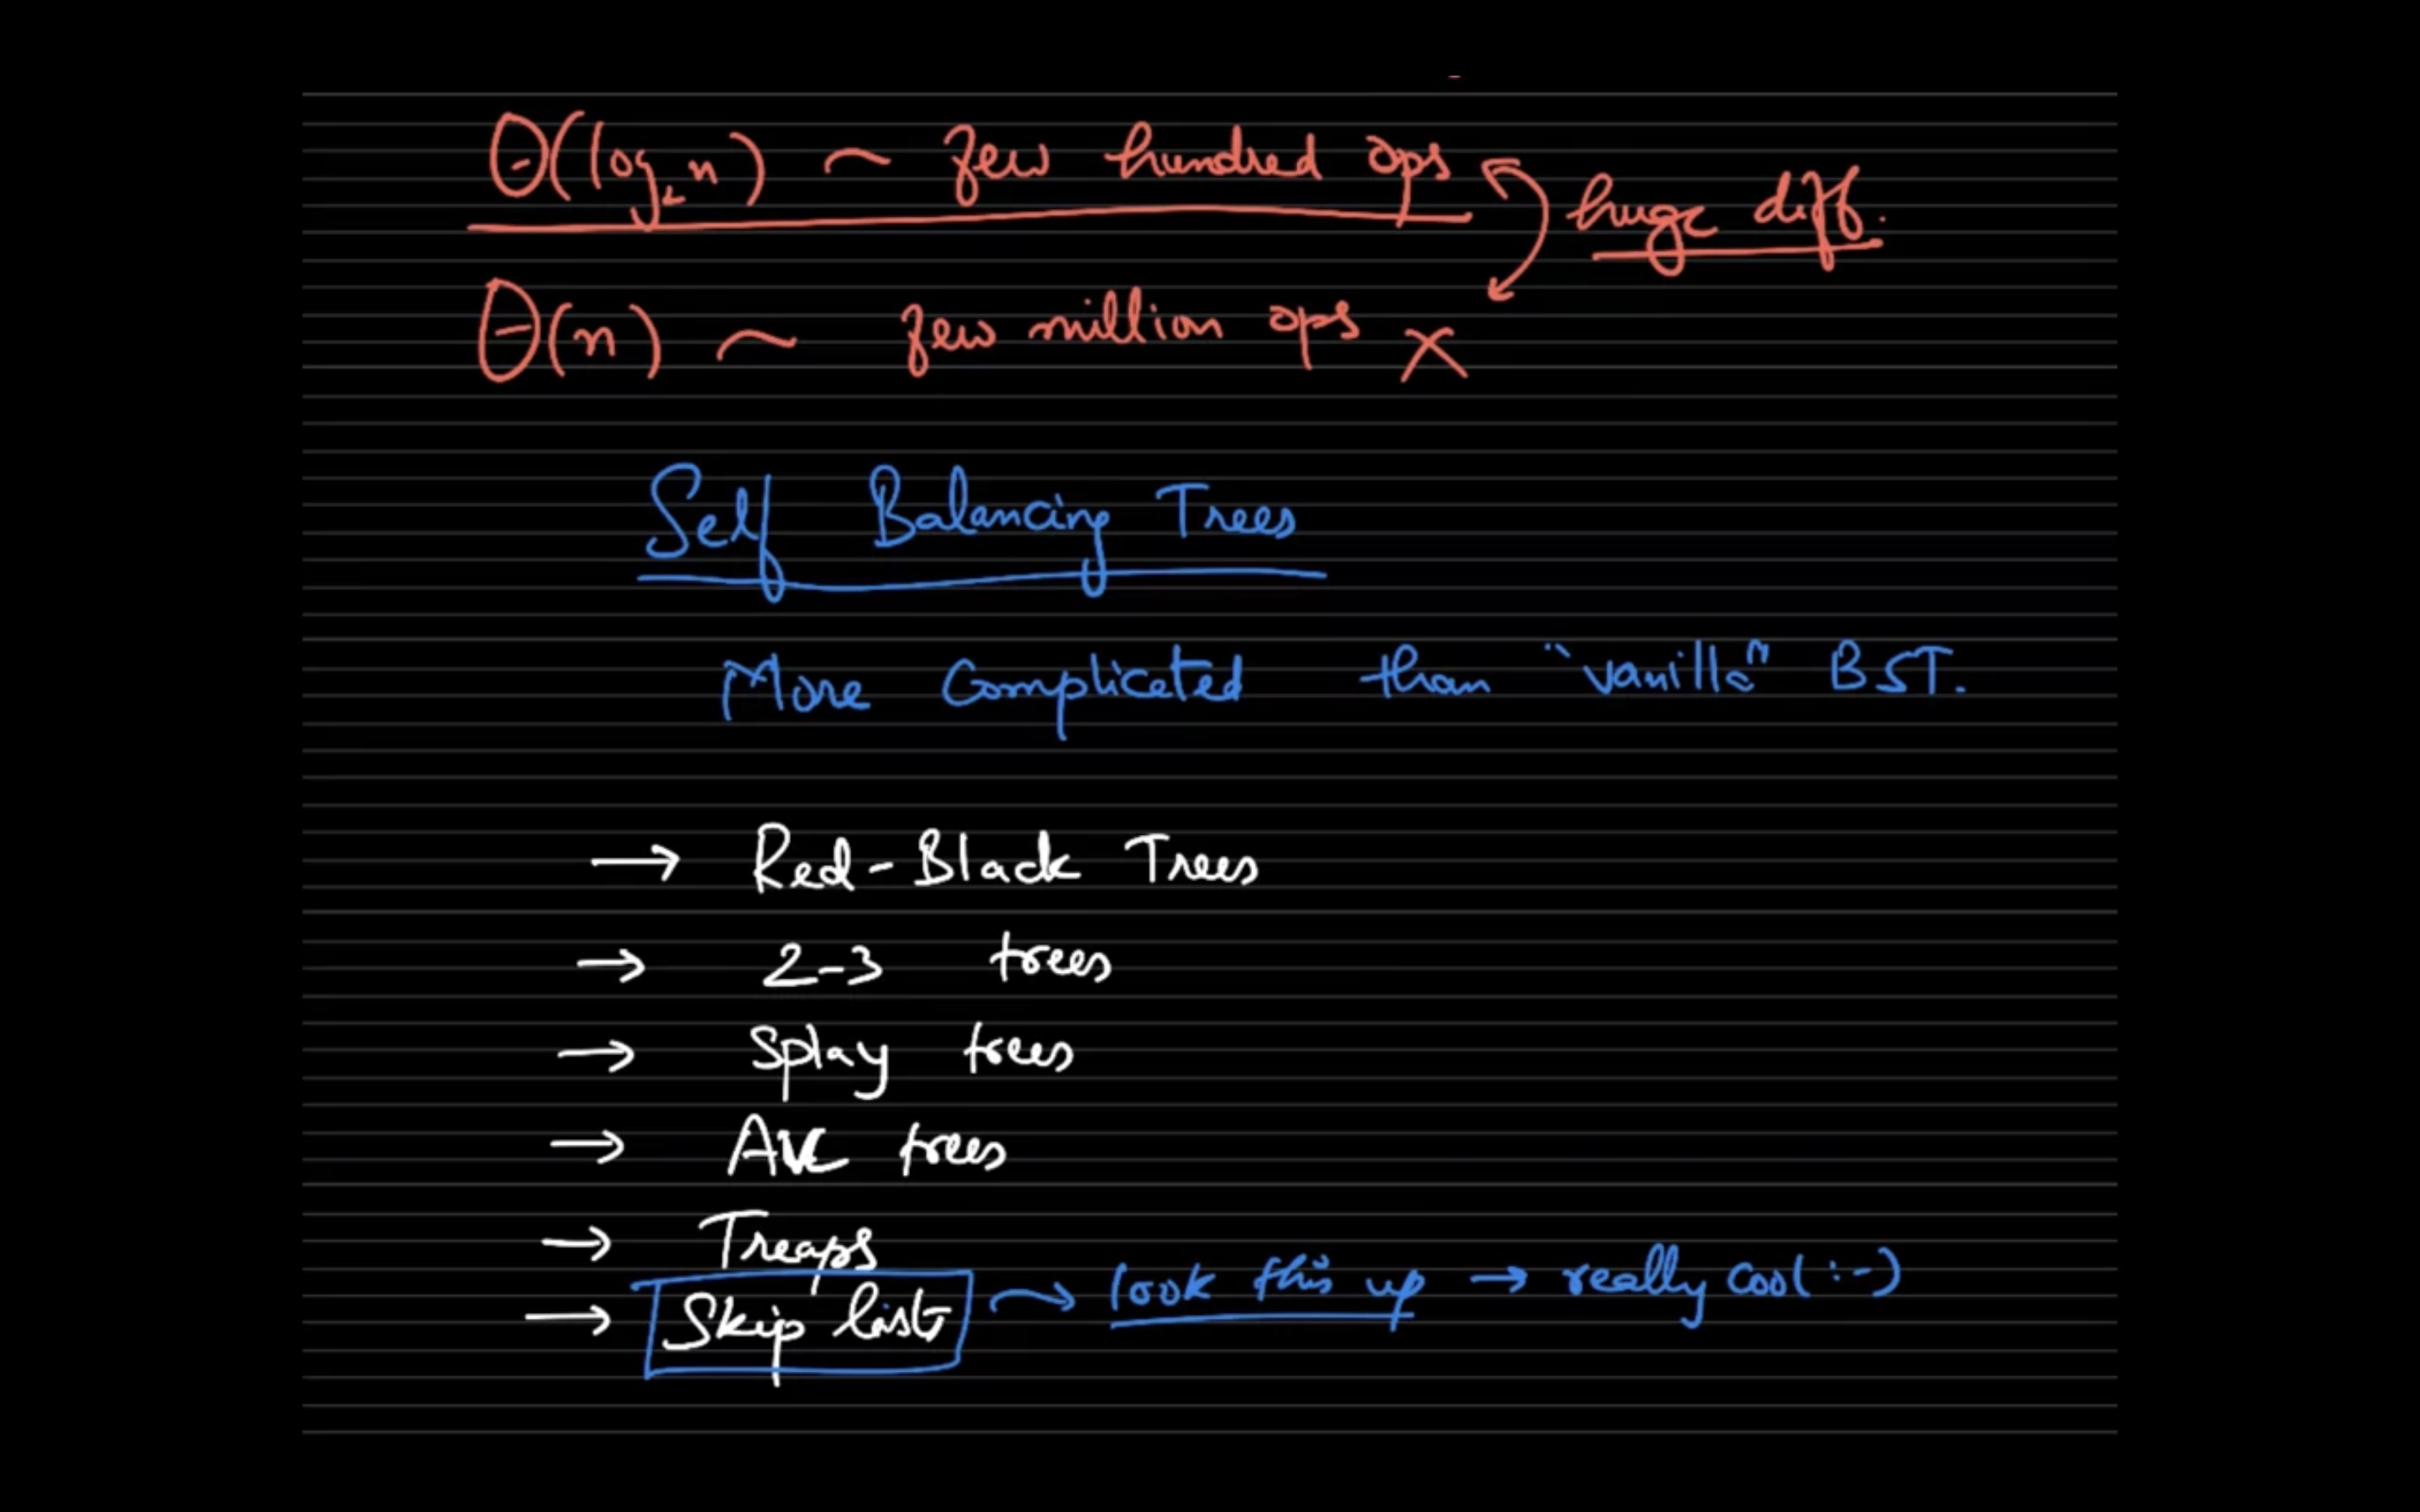 Θ(log₂n) ~ few hundred ops
huge diff.
Θ(n) ~ few million ops X
Self Balancing Trees
More Complicated than "vanilla" BST.
→ Red-Black Trees
→ 2-3 trees
→ Splay trees
→ AVL trees
→ Treaps
→ Skip list → look this up → really cool :-)